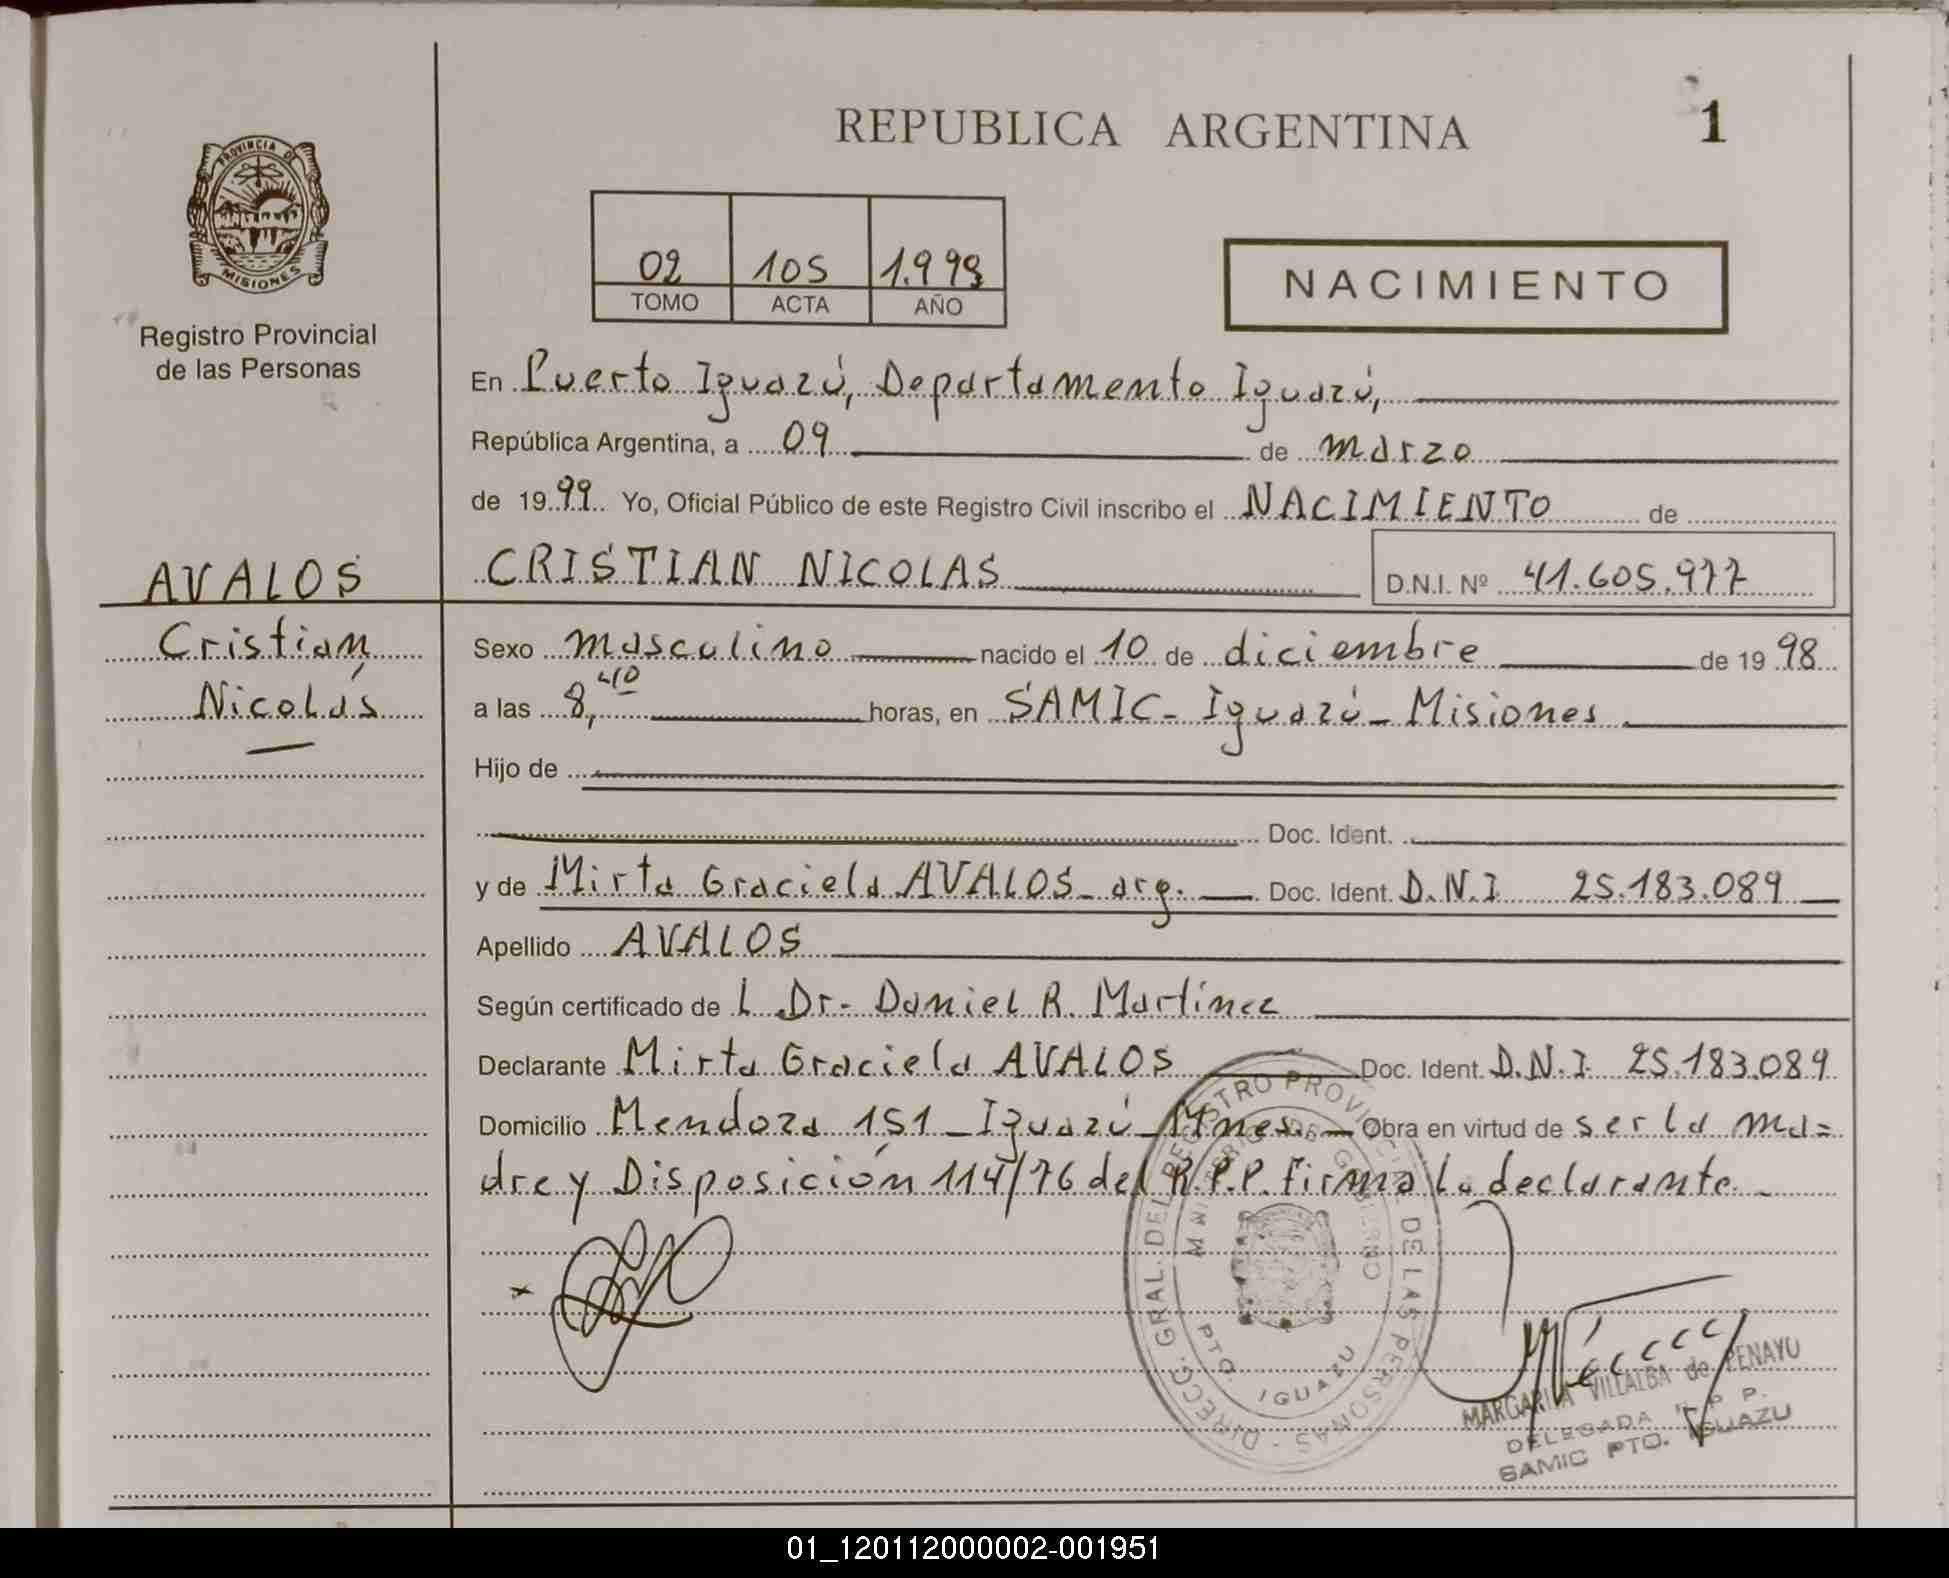 REPUBLICA ARGENTINA
1
PROVINCIA DE
MISIONES
Registro Provincial
de las Personas
02 105 1.999
TOMO ACTA AÑO
NACIMIENTO
En Puerto Iguazú, Departamento Iguazú,
República Argentina, a 09 de marzo
de 1999 Yo, Oficial Público de este Registro Civil inscribo el NACIMIENTO de
AVALOS
CRISTIAN NICOLAS D.N.I. Nº 41.605.977
Cristian
Nicolás
Sexo masculino nacido el 10 de diciembre de 1998
a las 8,40 horas, en SAMIC- Iguazú- Misiones
Hijo de
Doc. Ident.
y de Mirta Graciela AVALOS- arg. Doc. Ident. D.N.I 25.183.089
Apellido AVALOS
Según certificado de L Dr- Daniel R. Martínez
Declarante Mirta Graciela AVALOS Doc. Ident. D.N.I 25.183.089
Domicilio Mendoza 151 - Iguazú - Mnes. Obra en virtud de ser la ma=
dre y Disposición 114/76 del R.P.P. Firma la declarante.-
DIRECC. GRAL. DEL REGISTRO PROVINCIAL DE LAS PERSONAS -
MINISTERIO DE GOBIERNO
PTO IGUAZU
MARGARITA VILLALBA de PENAYO
DELEGADA R. P. P.
SAMIC PTO. IGUAZU
01_120112000002-001951